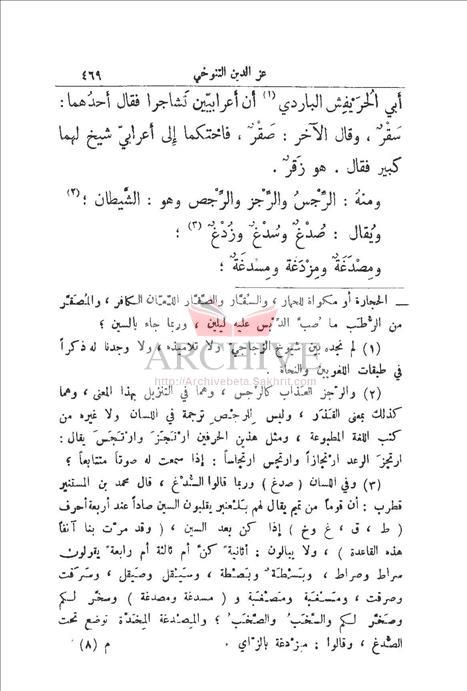 عز الدين التنوخي ٤٦٩
أبي الحَرَنْفِش الباردي (١) أن أعرابيّين تَشاجرا فقال أحدُهما :
سَقْرٌ ، وقال الآخر : صَقْرٌ ، فاحتكما إلى أعرابيّ شيخ لهما
كبير فقال . هو زَقْرٌ .
ومنهُ : الرِّجْسُ والرِّجْز والرِّجْص وهو : الشَّيطان ؛ (٢)
ويُقال : صُدْغٌ وسُدْغٌ وزُدْغٌ (٣) ؛
ومِصْدَغَةٌ ومِزْدَغة ومِسدغَةٌ ؛
ــ الحجارة أو مكواة للحمار ، والسَّقّار والصَّقّار اللعّان الكافر ، والمُصَقّر
من الرُّطَب ما صُبَّ الدِّبْس عليه ليلين ، وربما جاء بالسين ؛
(١) لم نجده بين شيوخ الزجاجي ولا تلاميذه ، ولا وجدنا له ذكراً
في طبقات اللغويين والنحاة .
(٢) والرجز العذاب كالرجس ، وهما في التنزيل بهذا المعنى ، وهما
كذلك بمعنى القَذَر ، وليس للرجص ترجمة في اللسان ولا غيره من
كتب اللغة المطبوعة ، ومثل هذين الحرفين ارْتَجَزَ وارْتَجَسَ يقال :
ارتجز الرعد ارتجازاً وارتجس ارتجاساً : إذا سمعت له صوتاً متتابعاً ؛
(٣) وفي اللسان ( صدغ ) وربما قالوا السُّدْغ ، قال محمد بن المستنير
قطرب : أن قوماً من تميم يقال لهم بَلْعنبر يقلبون السين صاداً عند أربعة أحرف
( ط ، ق ، غ وخ ) إذا كن بعد السين ، ( وقد مرّت بنا آنفاً
هذه القاعدة ) ، ولا يبالون : أثانية كنّ أم ثالثة أم رابعة يقولون
سراط وصراط ، وبَسْطَة وبَصْطة ، وسَيْقل وصَيقل ، وسَرَقت
وصرقت ، ومَسْغَبة ومَصْغَبة و ( مسدغة ومصدغة ) وسخّر لكم
وصَخّر لكم والسَّخَب والصَّخَب ؛ والمِصدغة المِخدّة توضع تحت
الصُّدغ ، وقالوا : مزدغة بالزاي . م (٨)
ARCHIVE
http://Archivebeta.Sakhrit.com